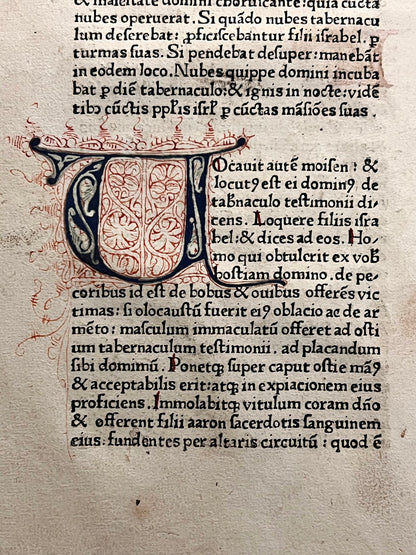 & maiestate domini choruscante: quia cūcta
nubes operuerat. Si quādo nubes tabernacu
lum deserebat: ꝓficiscebantur filii israhel. ꝑ
turmas suas. Si pendebat desuper: manebāt
in eodem loco. Nubes quippe domini incuba
bat ꝑ diē tabernaculo: & ignis in nocte: vidē
tibꝰ cūctis ppl̄is isrl̄ ꝑ cūctas māsiōes suas.
VOcauit autē moisen: &
locutꝰ est ei dominꝰ de
tab̄naculo testimonii di
cens. Loquere filiis isra
bel: & dices ad eos. Ho⸗
mo qui obtulerit ex vob̄
hostiam domino. de pe⸗
coribus id est de bobus & ouibus offerēs vic
timas: si olocaustū fuerit eiꝰ oblacio ac de ar
mēto: masculum immaculatū offeret ad osti
um tabernaculum testimonii. ad placandum
sibi dominū. Ponetqꝫ super caput ostie manꝰ
& acceptabilis erit: atqꝫ in expiacionem eius
proficiens. Immolabitqꝫ vitulum coram dn̄o
& offerent filii aaron sacerdotis sanguinem
eius: fundentes per altaris circuitū: quod ē